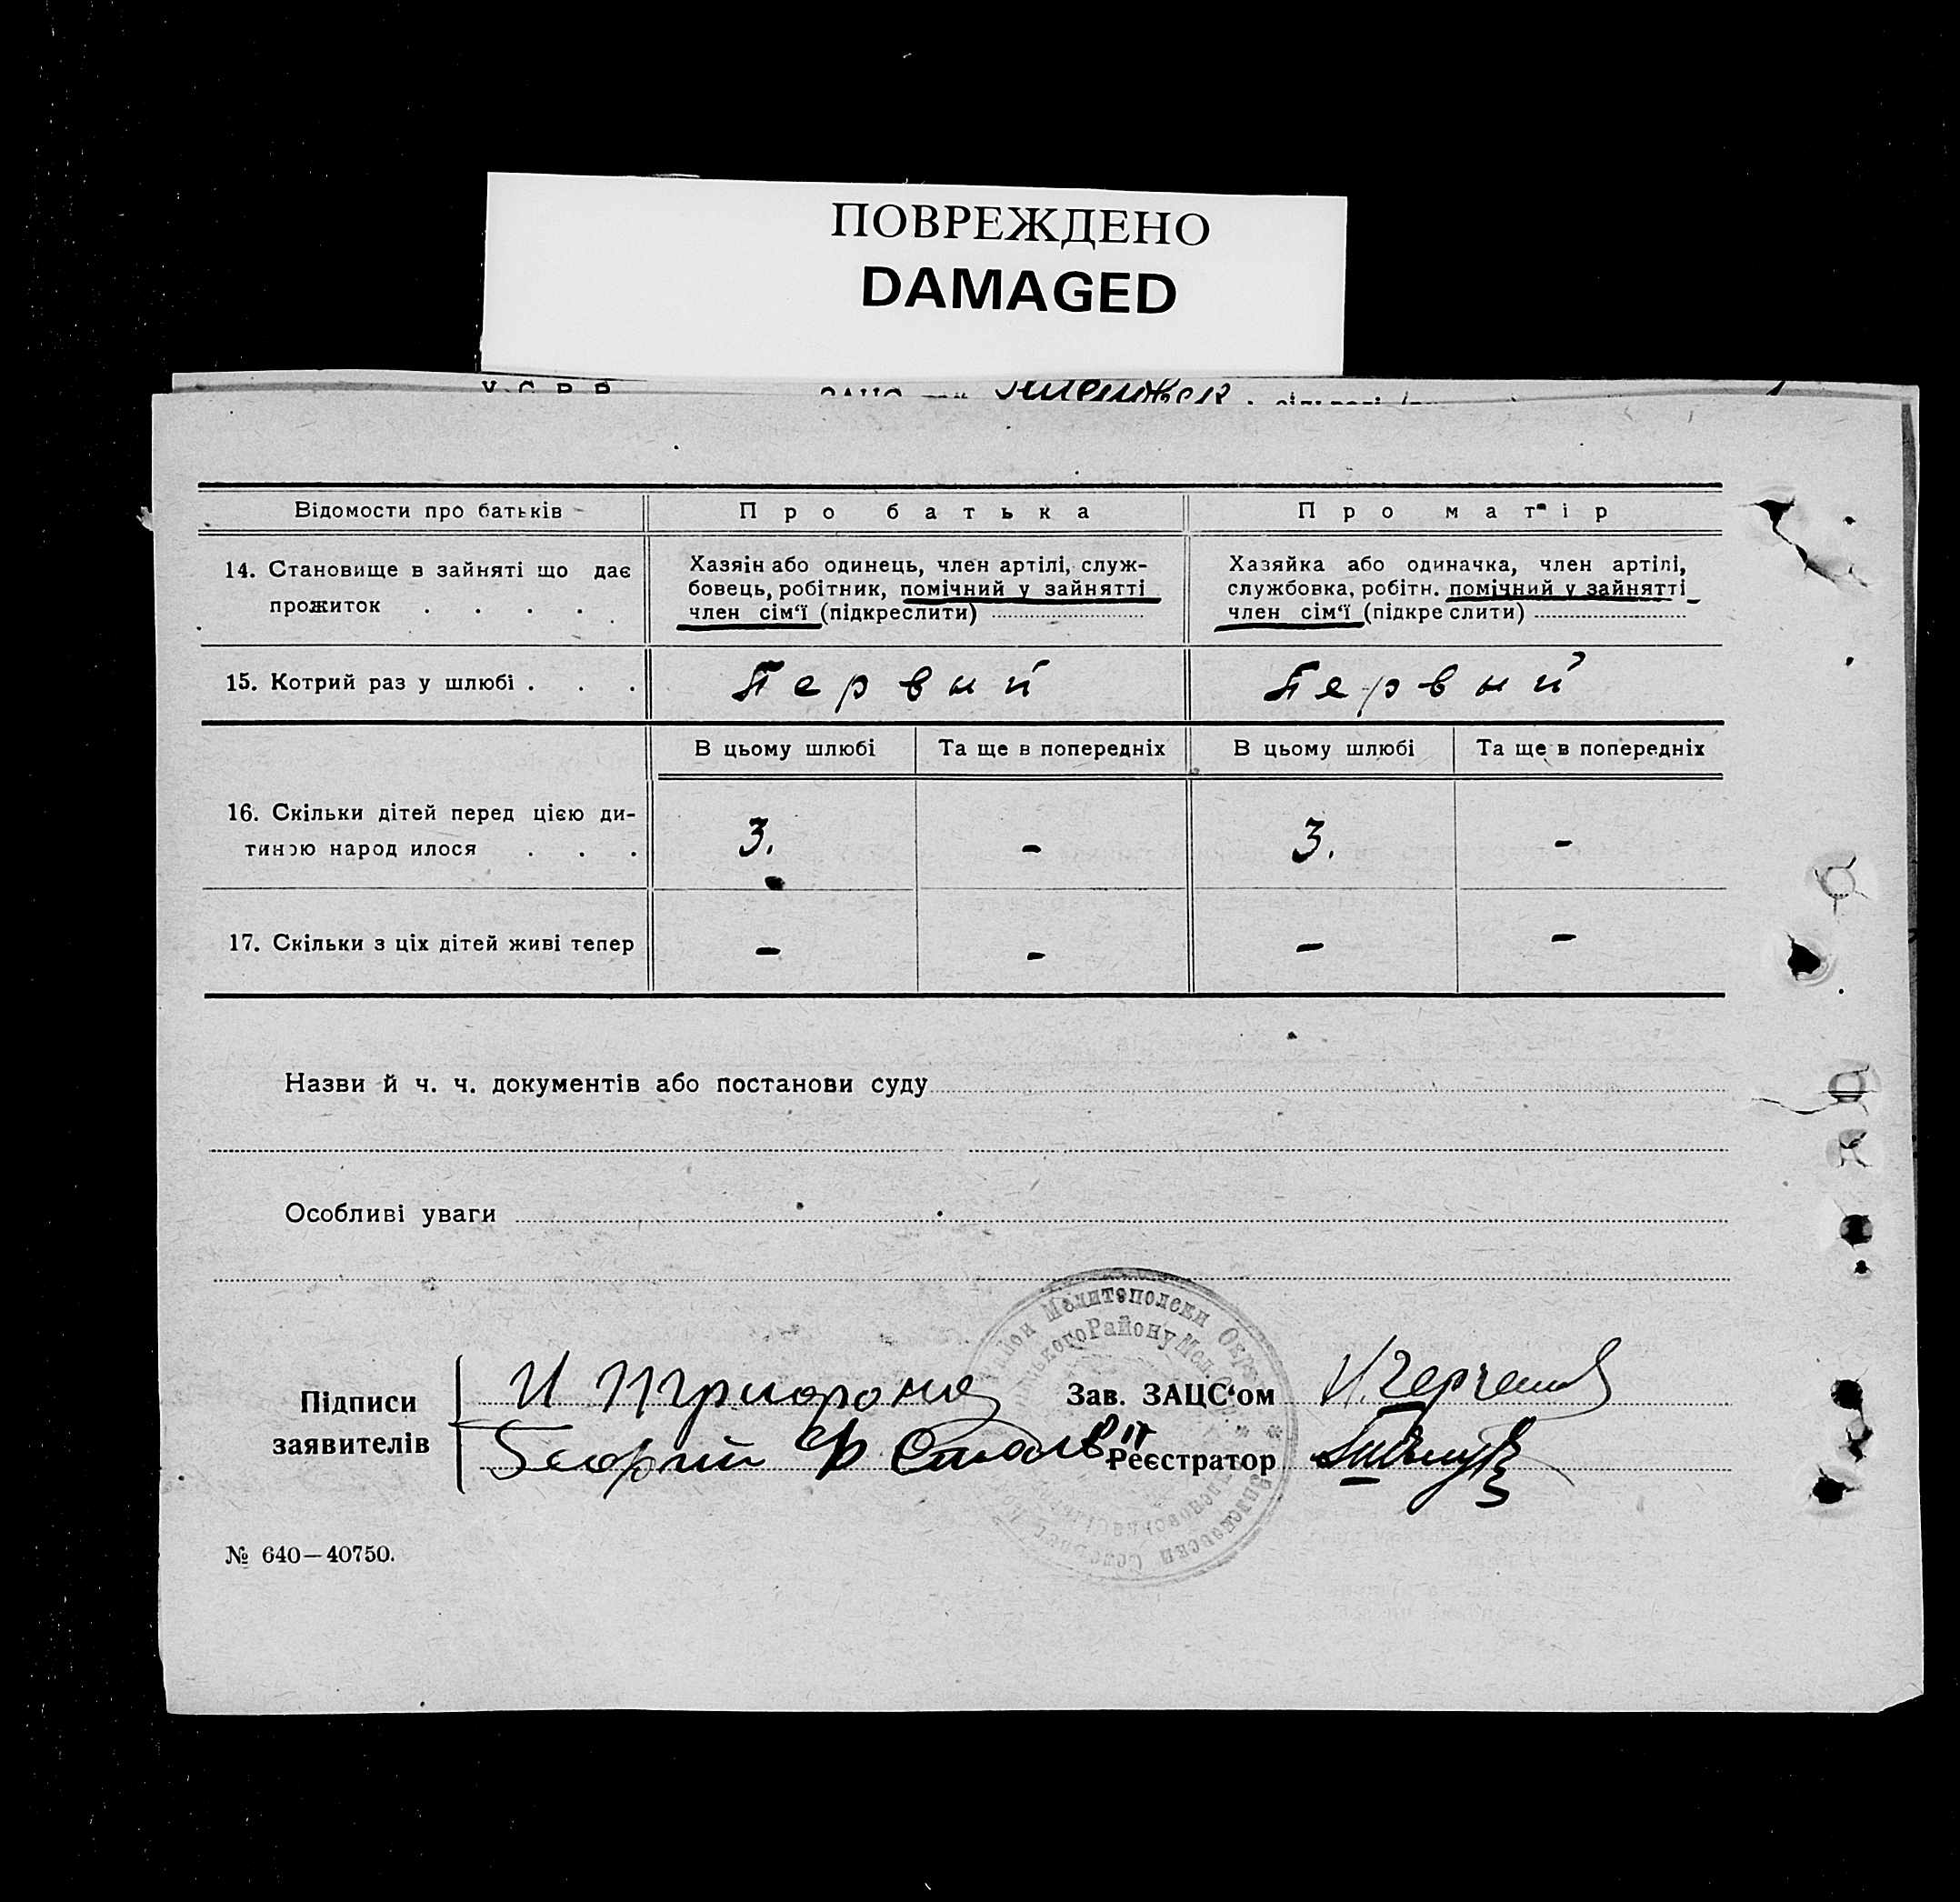 ПОВРЕЖДЕНО
DAMAGED
Відомости про батьків
Про батька
Про матір
14. Становище в зайняті що дає
прожиток . . . .
Хазяїн або одинець, член артілі, служ-
бовець, робітник, помічний у зайнятті
член сім‘ї (підкреслити)
Хазяйка або одиначка, член артілі,
службовка, робітн. помічний у зайнятті
член сім‘ї (підкреслити)
15. Котрий раз у шлюбі . . .
Первый
Первый
В цьому шлюбі
Та ще в попередніх
В цьому шлюбі
Та ще в попередніх
16. Скільки дітей перед цією ди-
тиною народилося . . .
3.
-
3.
-
17. Скільки з ціх дітей живі тепер
-
-
-
-
Назви й ч. ч. документів або постанови суду
Особливі уваги
Підписи
заявителів
И
Георгий Ф
Зав. ЗАЦС‘ом
Реєстратор
Мелитополски
Району
№ 640—40750.